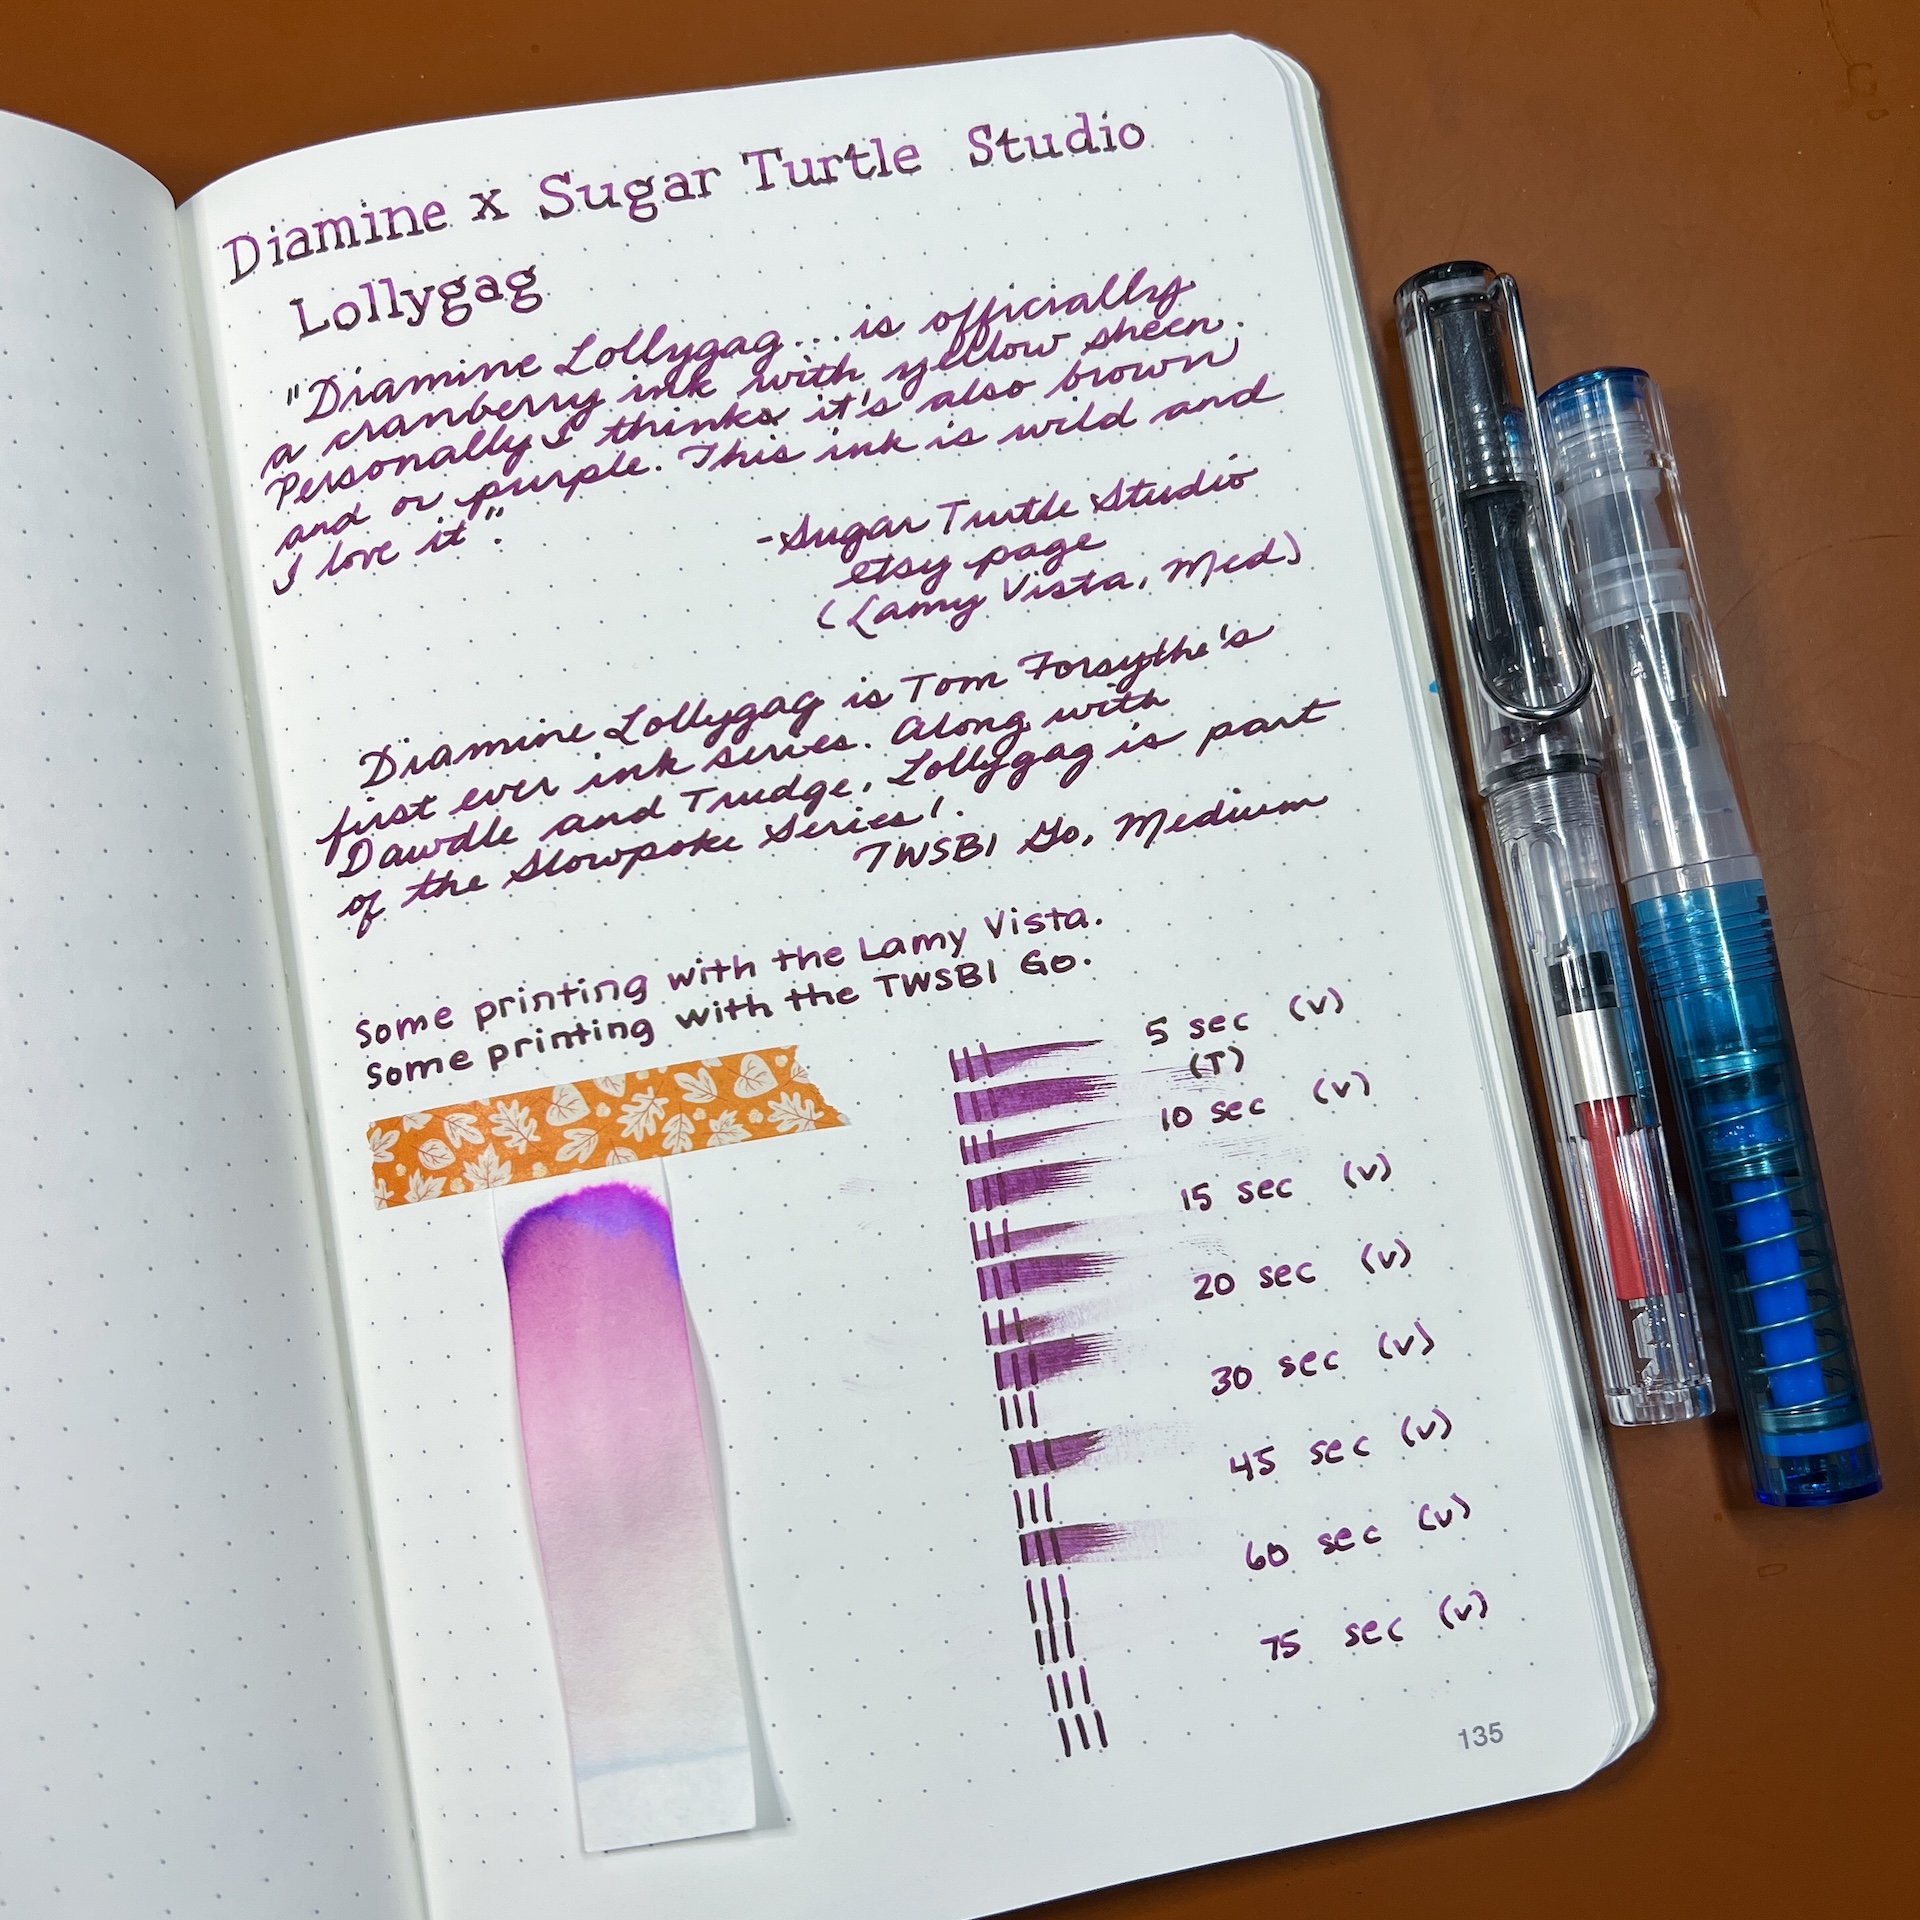 Diamine x Sugar Turtle Studio
Lollygag
"Diamine Lollygag... is officially
a cranberry ink with yellow sheen.
Personally I thinks it's also brown
and or purple. This ink is wild and
I love it".
-Sugar Turtle Studio
etsy page
(Lamy Vista, Med)
Diamine Lollygag is Tom Forsythe's
first ever ink series. Along with
Dawdle and Trudge, Lollygag is part
of the Slowpoke Series!.
TWSBI Go, Medium
Some printing with the Lamy Vista.
Some printing with the TWSBI Go.
5 sec (V)
(T)
10 sec (V)
15 sec (V)
20 sec (V)
30 sec (V)
45 sec (V)
60 sec (V)
75 sec (V)
135